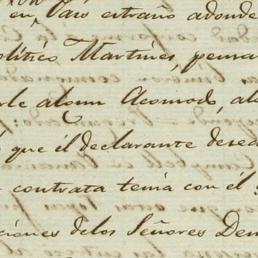 en País extraño adonde
Político Martines, pensa
rle algun Acomodo, al
que el declarante dese
contrata tenia con el
ciones delos Señores Den